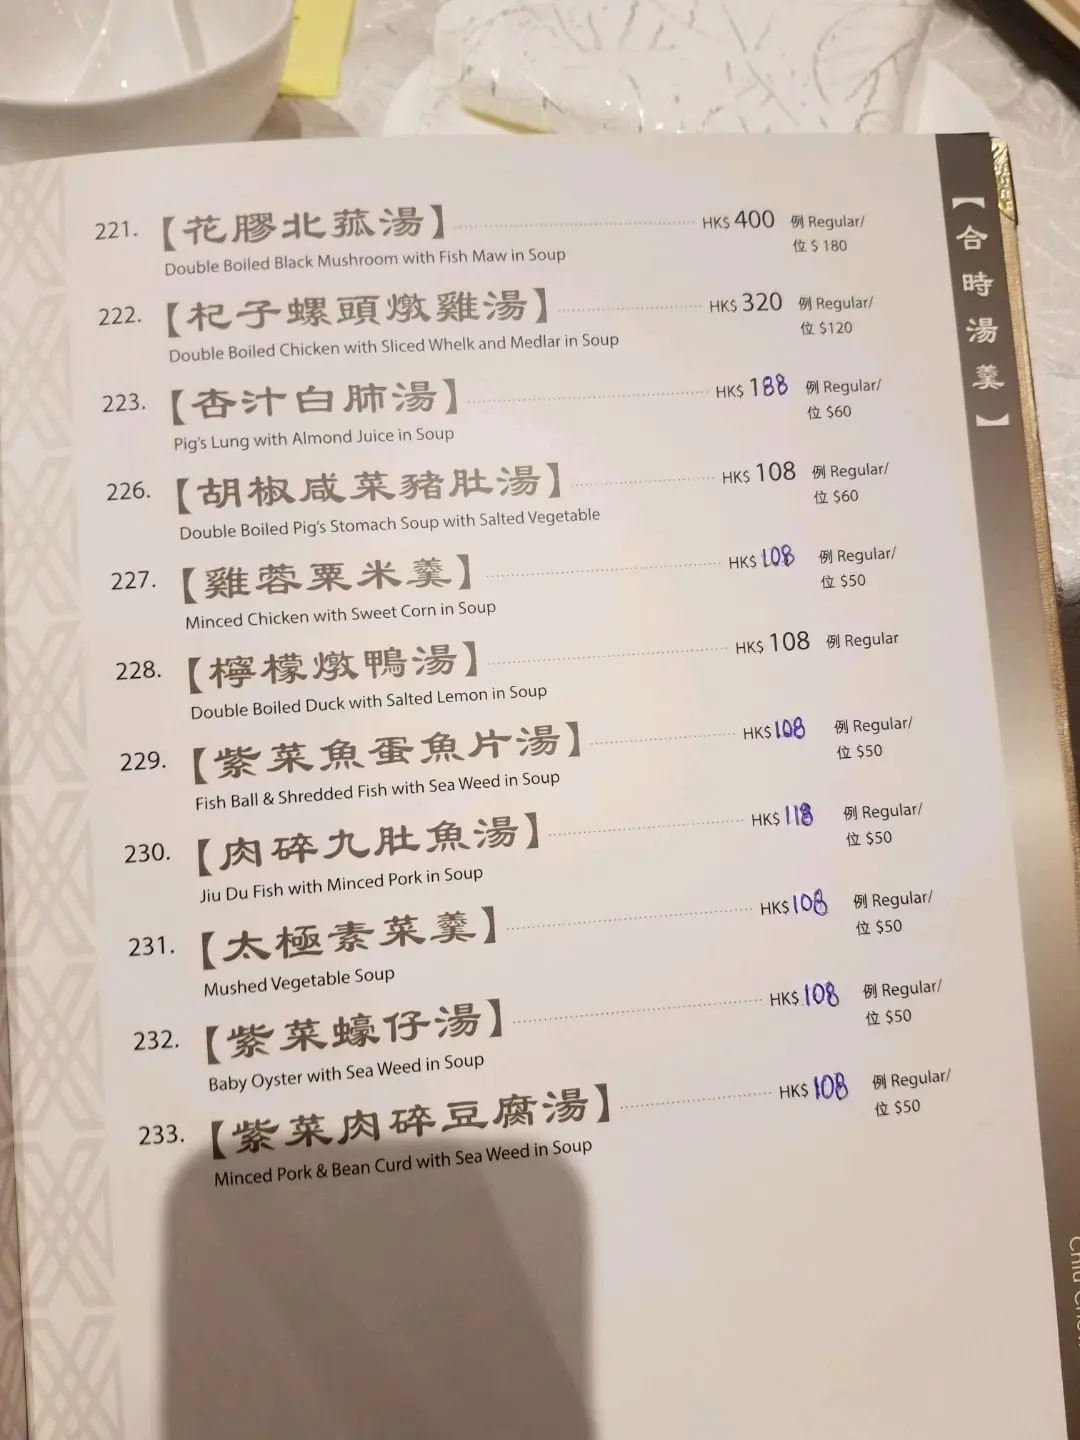 221. 【花膠北菰湯】 HK$ 400 例 Regular/
位 $ 180
Double Boiled Black Mushroom with Fish Maw in Soup
222. 【杞子螺頭燉雞湯】 HK$ 320 例 Regular/
位 $120
Double Boiled Chicken with Sliced Whelk and Medlar in Soup
223. 【杏汁白肺湯】 HK$ 188 例 Regular/
位 $60
Pig's Lung with Almond Juice in Soup
226. 【胡椒咸菜豬肚湯】 HK$ 108 例 Regular/
位 $60
Double Boiled Pig's Stomach Soup with Salted Vegetable
227. 【雞蓉粟米羹】 HK$ 108 例 Regular/
位 $50
Minced Chicken with Sweet Corn in Soup
228. 【檸檬燉鴨湯】 HK$ 108 例 Regular
Double Boiled Duck with Salted Lemon in Soup
229. 【紫菜魚蛋魚片湯】 HK$ 108 例 Regular/
位 $50
Fish Ball & Shredded Fish with Sea Weed in Soup
230. 【肉碎九肚魚湯】 HK$ 118 例 Regular/
位 $50
Jiu Du Fish with Minced Pork in Soup
231. 【太極素菜羹】 HK$ 108 例 Regular/
位 $50
Mushed Vegetable Soup
232. 【紫菜蠔仔湯】 HK$ 108 例 Regular/
位 $50
Baby Oyster with Sea Weed in Soup
233. 【紫菜肉碎豆腐湯】 HK$ 108 例 Regular/
位 $50
Minced Pork & Bean Curd with Sea Weed in Soup
【合時湯羹】